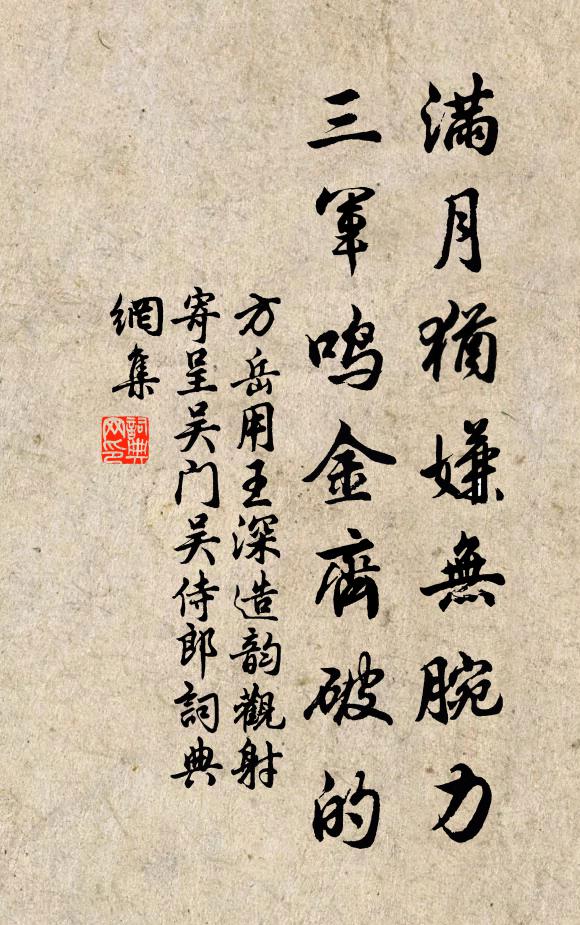 滿月猶嫌無腕力
三軍鳴金齊破的
方岳用王深造韵觀射
寄呈吴门吴侍郎詞典
網集
詞典
网印